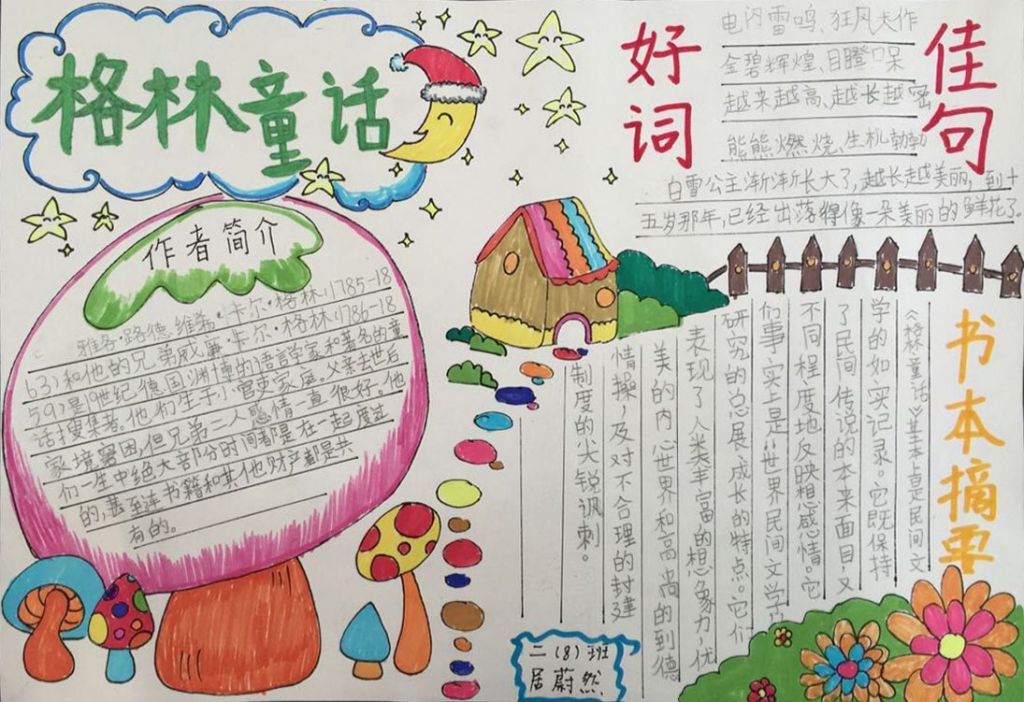 格林童话
作者简介
雅各·路德维希·卡尔·格林(1785-18
63)和他的兄弟威廉·卡尔·格林(1786-18
59)是19世纪德国渊博的语言学家和著名的童
话搜集者。他们生于小官吏家庭。父亲去世后
家境窘困,但兄弟二人感情一直很好。他
们一生中绝大部分时间都是在一起度过
的,甚至连书籍和其他财产都是共
有的。
好词
佳句
电闪雷鸣、狂风大作
金碧辉煌、目瞪口呆
越来越高、越长越密
熊熊燃烧、生机勃勃
白雪公主渐渐长大了,越长越美丽,到十
五岁那年,已经出落得像一朵美丽的鲜花了。
书本摘要
《格林童话》基本点是民间文
学的如实记录。它既保持
了民间传说的本来面目又
不同程度地反映想感情。它
们事实上是"世界民间文学
研究的总展成长的特点。它们
表现了人类丰富的想象力,优
美的内心世界和高尚的到德
情操,及对不合理的封建
制度的尖锐讽刺。
二(8)班
居蔚然